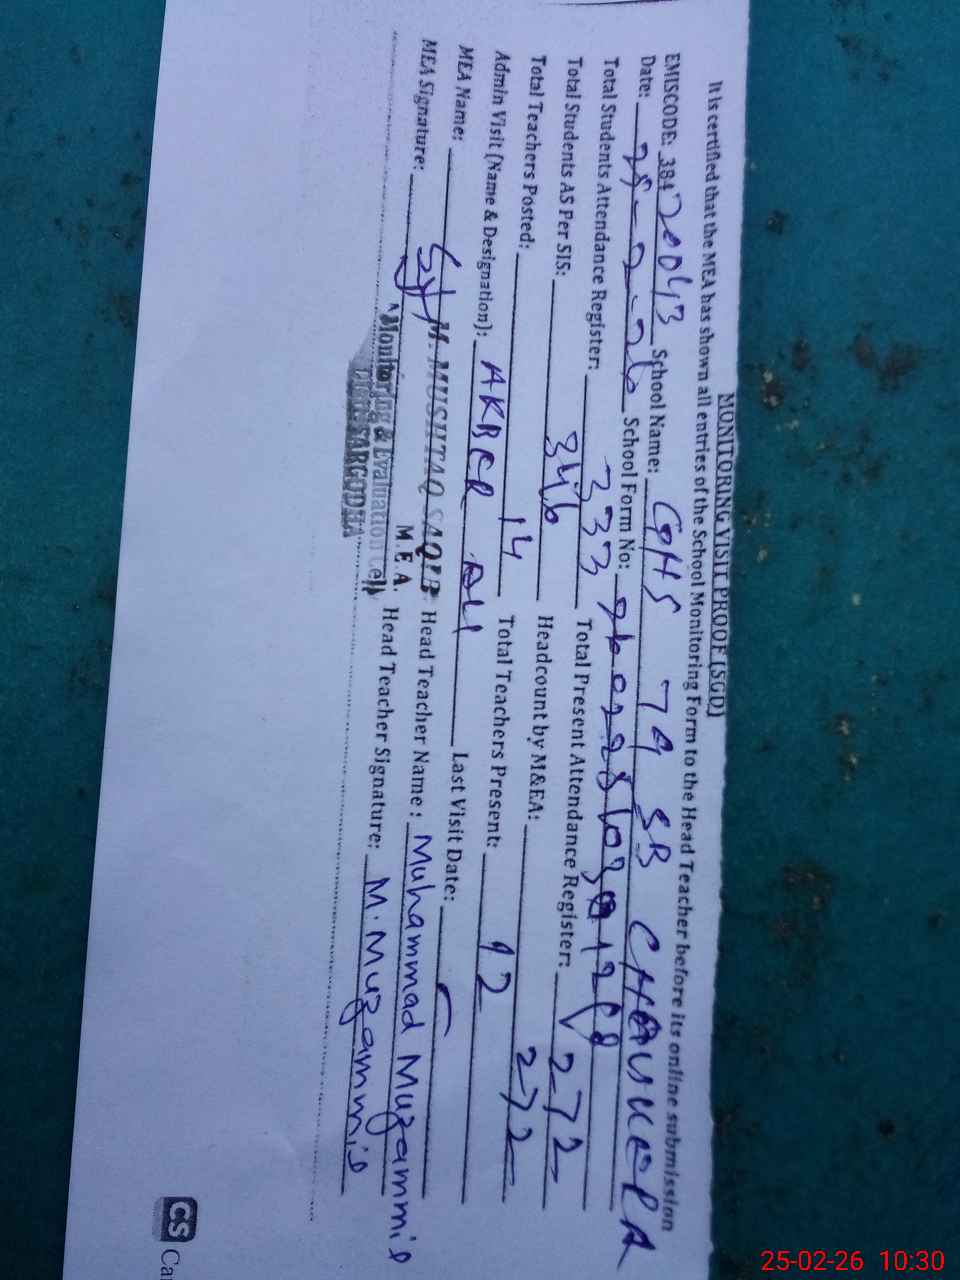 MONITORING VISIT PROOF (SGD)
It is certified that the MEA has shown all entries of the School Monitoring Form to the Head Teacher before its online submission
EMISCODE: 38420043 School Name: GHS 79 SB
Date: 25-02-26 School Form No:
Total Students Attendance Register: 333 Total Present Attendance Register: 272
Total Students AS Per SIS: 346 Headcount by M&EA: 272
Total Teachers Posted: 14 Total Teachers Present: 12
Admin Visit (Name & Designation): AKBER ALI Last Visit Date:
MEA Name: M. MUSHTAQ SAQIB Head Teacher Name: Muhammad Muzammil
M.E.A.
MEA Signature: Head Teacher Signature: M. Muzammil
Monitoring & Evaluation Cell
SARGODHA
CS Ca
25-02-26 10:30